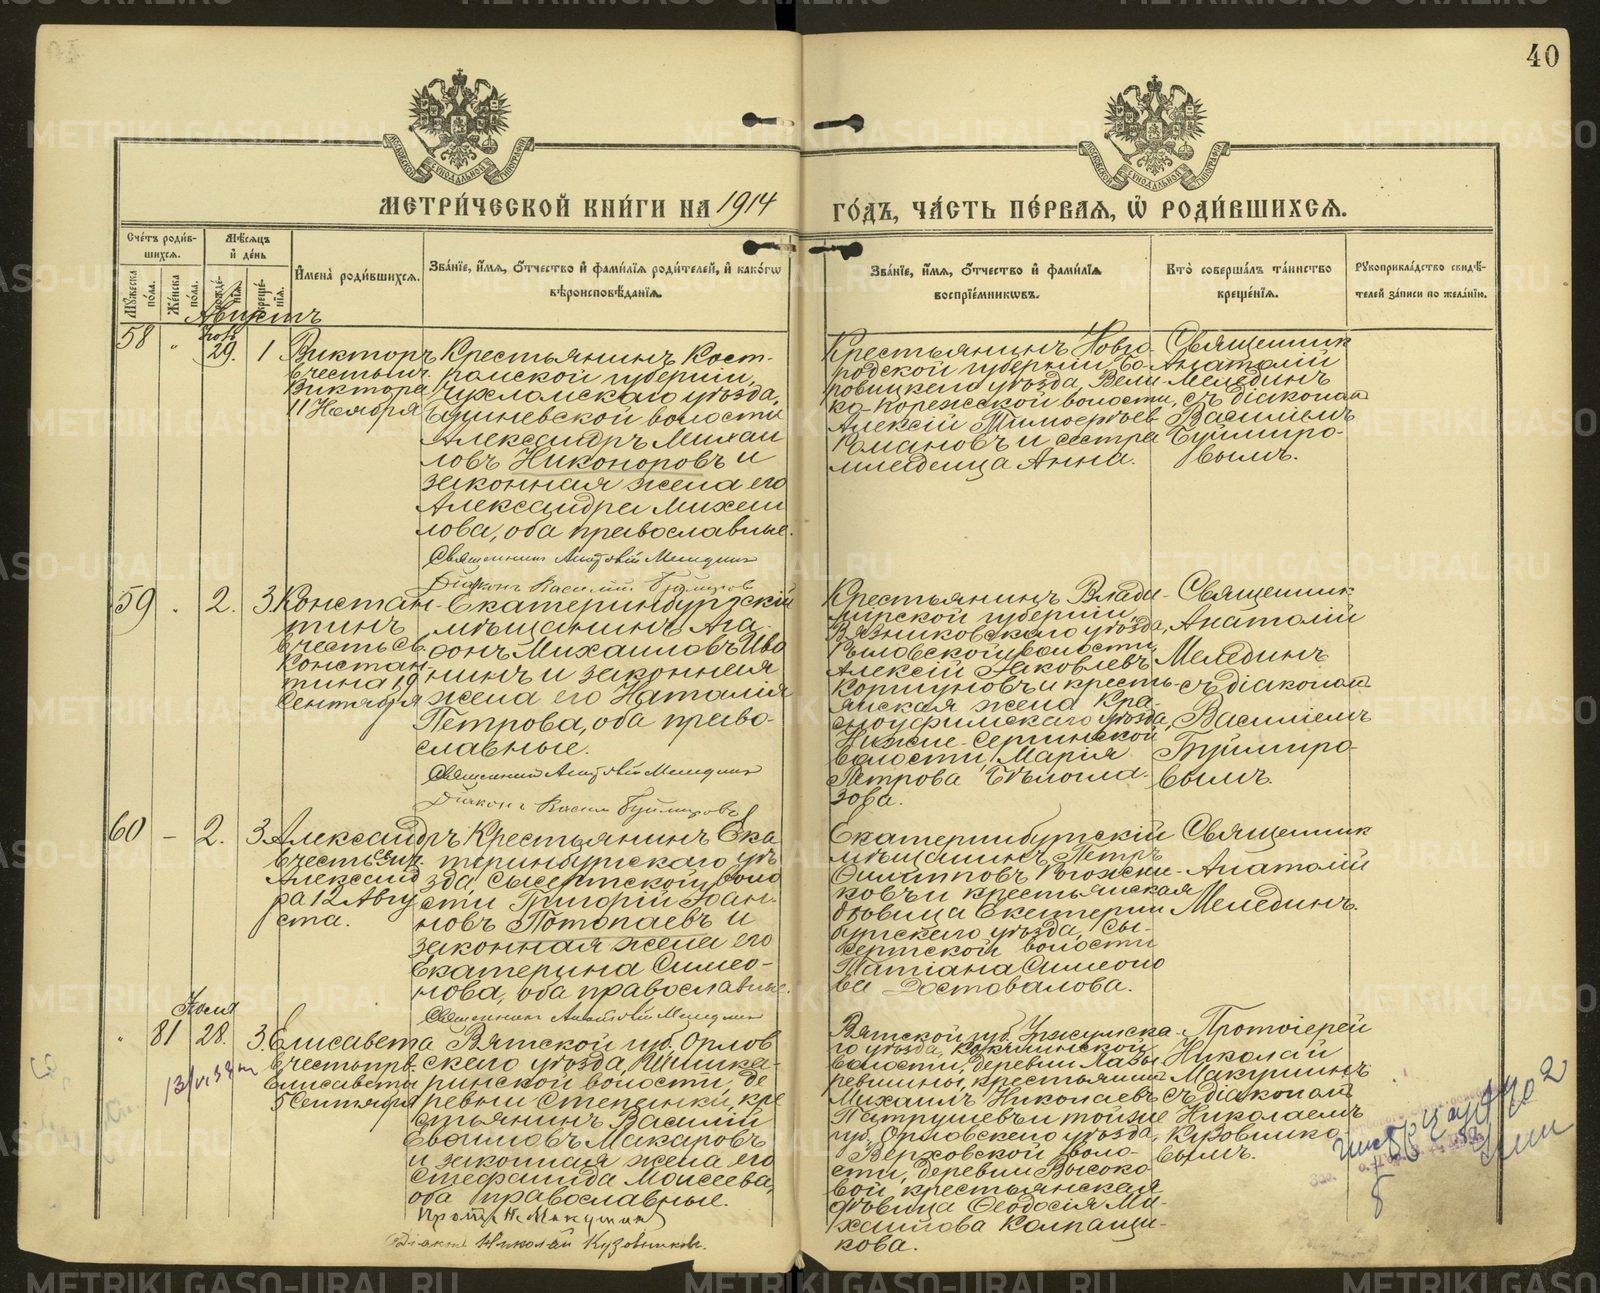 40
МОСКОВСКОЙ СѴНОДАЛЬНОЙ ТИПОГРАФІИ
МОСКОВСКОЙ СѴНОДАЛЬНОЙ ТИПОГРАФІИ
МЕТРИ́ЧЕСКОЙ КНИ́ГИ НА 1914 ГО́ДЪ, ЧА́СТЬ ПЕ́РВАЯ, Ѡ҆ РОДИ́ВШИХСЯ.
Сче́тъ роди́в-
шихся.
Мꙋ́жеска по́ла.
Же́нска по́ла.
Мѣ́сяцъ
и҆ де́нь
рожде́-
нїѧ.
креще́-
нїѧ.
И҆мена̀ роди́вшихся.
Зва́нїе, и҆́мѧ, ѻ҆́тчество и҆ фами́лїѧ роди́телей, и҆ како́гѡ
вѣроисповѣ́данїѧ.
Зва́нїе, и҆́мѧ, ѻ҆́тчество и҆ фами́лїѧ
воспрїе́мникѡвъ.
Кто̀ соверша́лъ та́инство
креще́нїѧ.
Рꙋкоприкла́дство свидѣ́-
телей за́писи по жела́нїю.
Августъ
58 " Іюль 29. 1
Викторъ
въ честь мч.
Виктора
11 Ноября
Крестьянинъ Кост-
ромской губерніи,
Чухломскаго уѣзда,
волости
Александръ Михаи
ловъ Никоноровъ и
законная жена его
Александра Михаи
лова, оба православные.
Священникъ Анатолій Мелединъ
Діаконъ Василій Буймировъ
Крестьянинъ Новго-
родской губерніи, Бо-
ровицкаго уѣзда, Вели-
ко-Порежской волости,
Алексій Тимофеевъ
Романовъ и сестра
младенца Анна.
Священник
Анатолій
Мелединъ
съ діаконом
Василіемъ
Буймиро-
вымъ.
59 " 2. 3.
Констан-
тинъ
въ честь св.
Констан
тина 19
Сентября
Екатеринбургскій
мѣщанинъ Ага-
фонъ Михаиловъ Ива
нинъ и законная
жена его Наталія
Петрова, оба право-
славные.
Священникъ Анатолій Мелединъ
Діаконъ Василій Буймировъ
Крестьянинъ Влади-
мірской губерніи,
Вязниковскаго уѣзда,
Рыловской волости
Алексій Яковлевъ
Коршуновъ и кресть-
янская жена Кра-
сноуфимскаго уѣзда,
Нижне-Сергинской
волости, Марія
Петрова Бѣлогла-
зова.
Священник
Анатолій
Мелединъ
съ діаконом
Василіемъ
Буймиро-
вымъ.
60 - 2. 3.
Александръ
въ честь
Александ
ра 12 Авгу
ста.
Крестьянинъ Ека
теринбургскаго уѣ
зда, Сысертской воло
сти Григорій Іоан-
новъ Потопаевъ и
законная жена его
Екатерина Симео-
нова, оба православные.
Священникъ Анатолій Мелединъ
Екатеринбургскій
мѣщанинъ Петръ
Филипповъ Рогожни-
ковъ и крестьянская
дѣвица Екатерин
бургскаго уѣзда, Сы-
сертской волости
Татіана Симеоно
ва Достовалова.
Священник
Анатолій
Мелединъ.
" 81 Іюля 28. 3.
13/VI 33
Елисавета
въ честь прв.
Елисаветы
5 Сентября
Вятской губ. Орлов
скаго уѣзда, Шишка-
ринской волости, де
ревни Степенки, кре
стьянинъ Василій
Евфимовъ Макаровъ
и законная жена его
Стефанида Моисеева,
оба православные.
Прот. Н. Макушин
Діаконъ Николай Кузовников.
Вятской губ. Уржумска-
го уѣзда, волости, деревни
крестьянин
Михаилъ Николаевъ
Патрушевъ и тойже
губ. Орловскаго уѣзда,
Верховской воло-
сти, деревни Высоко-
вой, крестьянская
дѣвица Феодосія Ми-
хаилова Колпащи-
кова.
Протоіерей
Николай
Макушинъ
съ діаконом
Николаемъ
Кузовнико-
вымъ.
METRIKI.GASO-URAL.RU